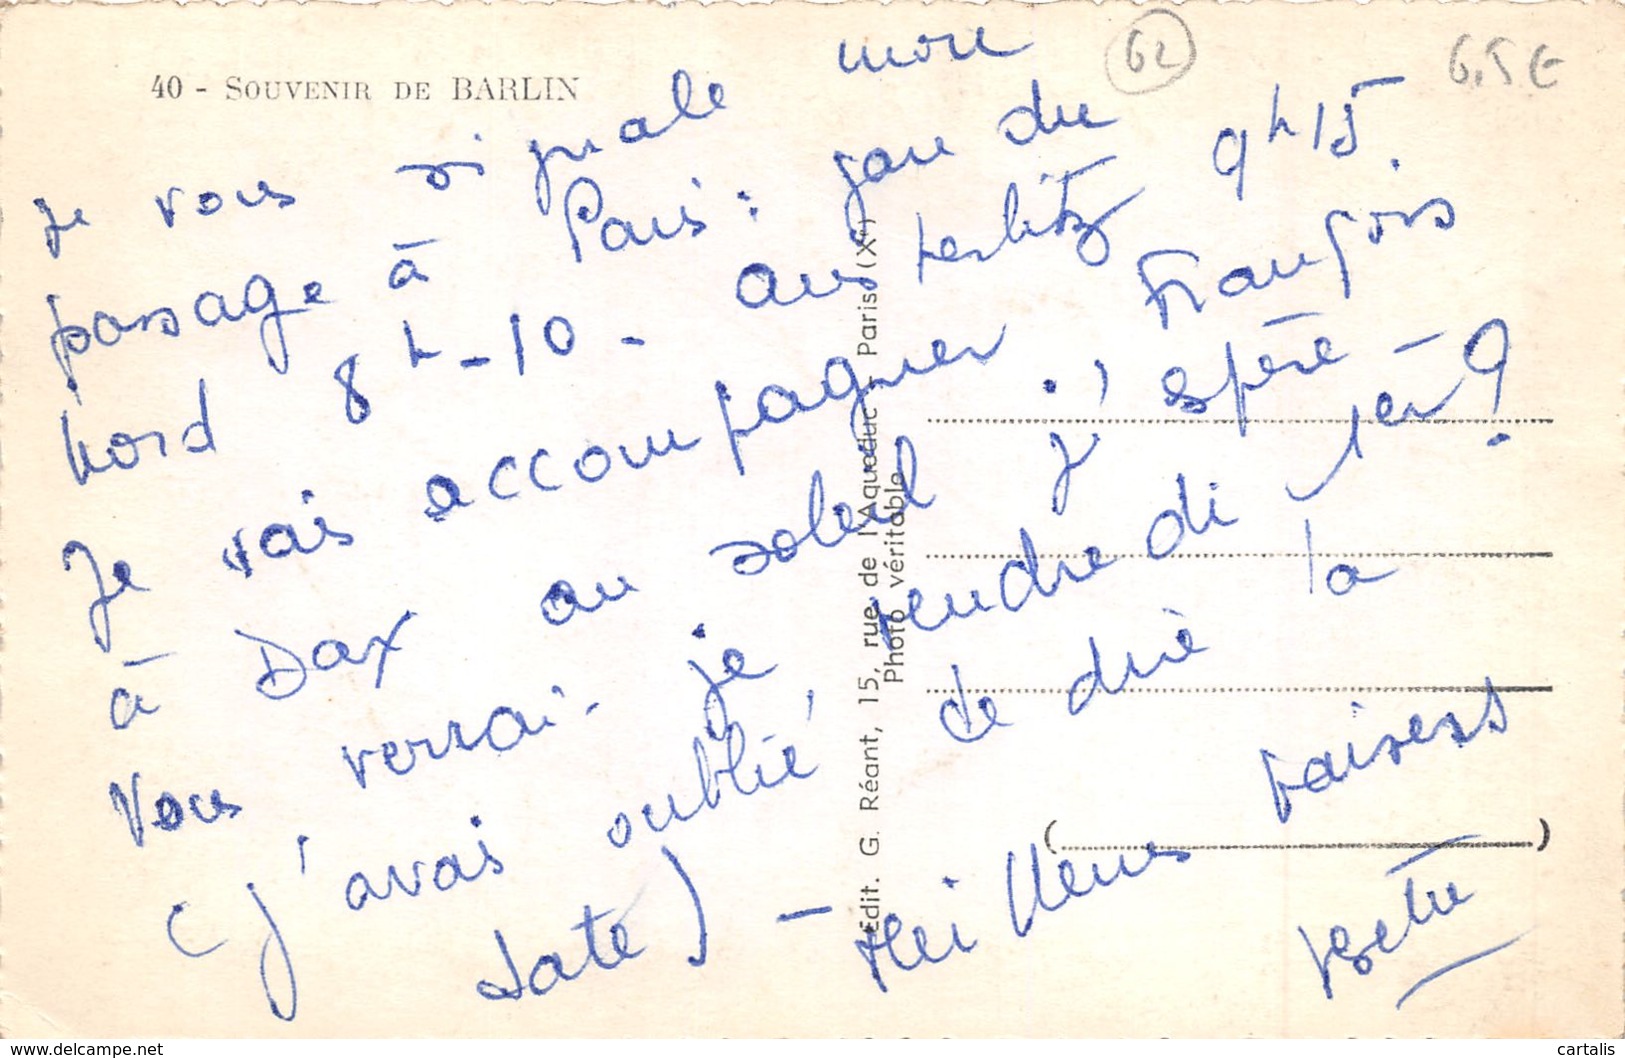 40 - SOUVENIR DE BARLIN
62
6,5 €
Je vous signale mon
passage à Paris : gare du
Nord 8h-10 - austerlitz 9h15.
Je vais accompagner François
à Dax au soleil j'espère -
Vous verrai-je vendredi 1er ?
(j'avais oublié de dire la
date) - Meilleurs baisers
Édit. G. Réant, 15, rue de l'Aqueduc - Paris (Xe)
Photo véritable
( )
cartalis
www.delcampe.net